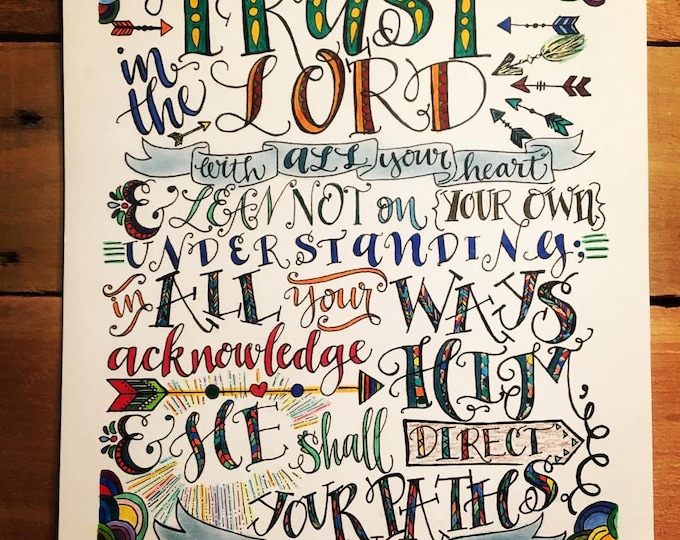 TRUST
in the LORD
with ALL your heart
& LEAN NOT on {YOUR OWN}
UNDERSTANDING;
in ALL your WAYS
acknowledge HIM,
& HE shall DIRECT
YOUR PATHS